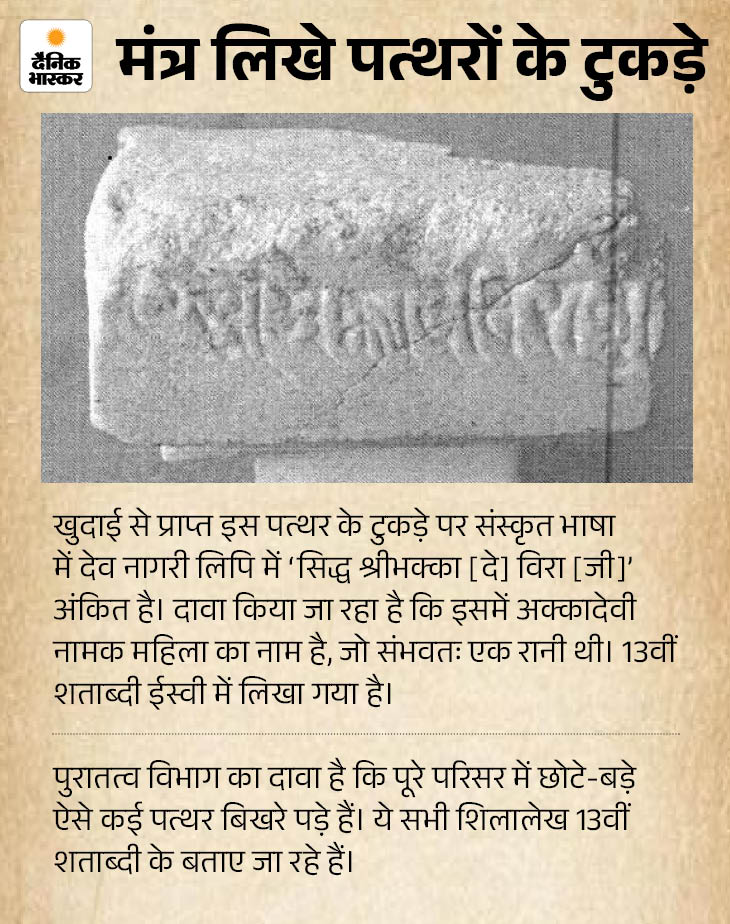 दैनिक
भास्कर
मंत्र लिखे पत्थरों के टुकड़े
खुदाई से प्राप्त इस पत्थर के टुकड़े पर संस्कृत भाषा
में देव नागरी लिपि में ‘सिद्ध श्रीभक्का [दे] विरा [जी]’
अंकित है। दावा किया जा रहा है कि इसमें अक्कादेवी
नामक महिला का नाम है, जो संभवतः एक रानी थी। 13वीं
शताब्दी ईस्वी में लिखा गया है।
पुरातत्व विभाग का दावा है कि पूरे परिसर में छोटे-बड़े
ऐसे कई पत्थर बिखरे पड़े हैं। ये सभी शिलालेख 13वीं
शताब्दी के बताए जा रहे हैं।